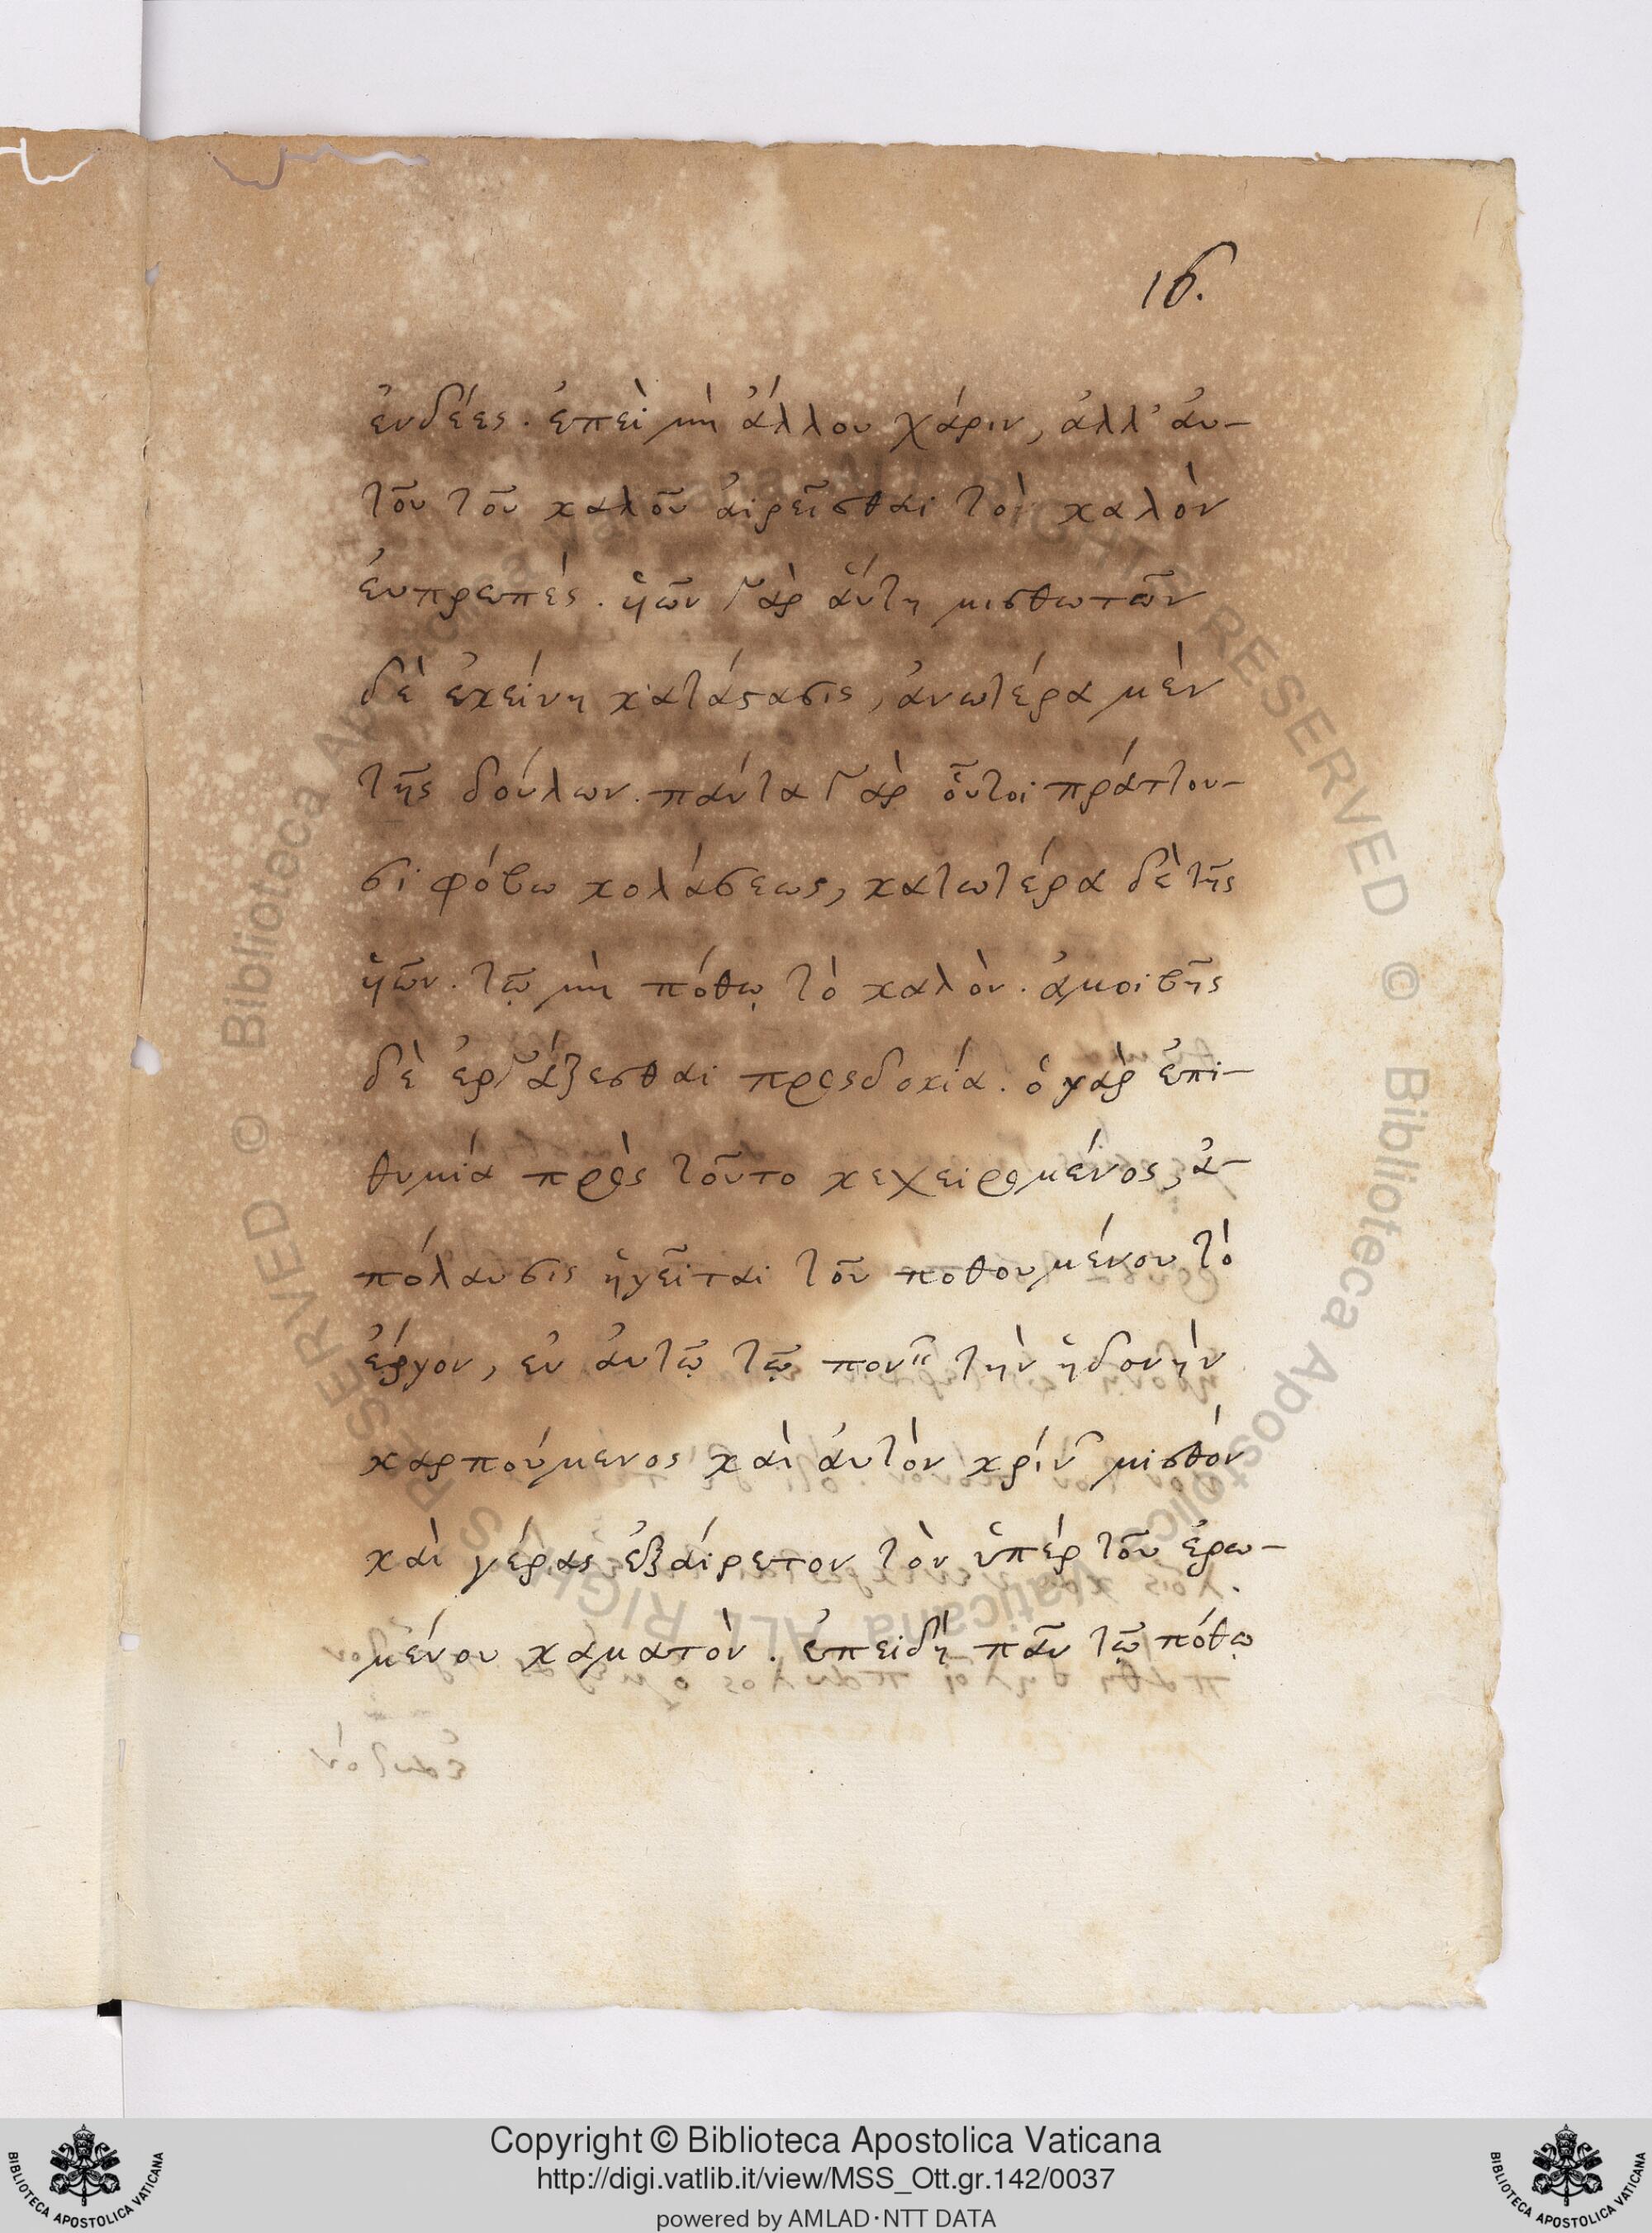 16.
ἐνδέες. ἐπεὶ μὴ ἄλλου χάριν, ἀλλ' ἀυ-
τοῦ τοῦ καλοῦ ἁιρεῖσθαι τὸ καλὸν
ἐυπρεπές. ὑῶν γὰρ ἅυτη μισθωτῶν
δὲ ἐκείνη κατάςασις, ἀνωτέρα μὲν
τῆς δούλων. πάντα γὰρ οὗτοι πράττου-
σι φόβω κολάσεως, κατωτέρα δὲ τῆς
ὑῶν. τῷ μὴ πόθῳ τὸ καλὸν. ἀμοιβῆς
δὲ ἐργάζεσθαι προςδοκία. ὁ γὰρ ἐπι-
θυμία πρὸς τοῦτο κεχειρομένος, ἀ-
πόλαυσις ἡγεῖται τοῦ ποθουμένου τὸ
ἔργον, ἐν ἀυτῷ τῷ πονεῖν τὴν ἡδονὴν
καρπούμενος καὶ ἀυτὸν κρίν͂ μισθόν
καὶ γέρας ἐξάιρετον τὸν ὑπέρ τοῦ ἐρω-
μένου καματὸν. ἐπειδὴ πᾶν τῷ πόθῳ
Copyright © Biblioteca Apostolica Vaticana
http://digi.vatlib.it/view/MSS_Ott.gr.142/0037
powered by AMLAD·NTT DATA
BIBLIOTECA APOSTOLICA VATICANA
BIBLIOTECA APOSTOLICA VATICANA
© Biblioteca Apostolica Vaticana ALL RIGHTS RESERVED